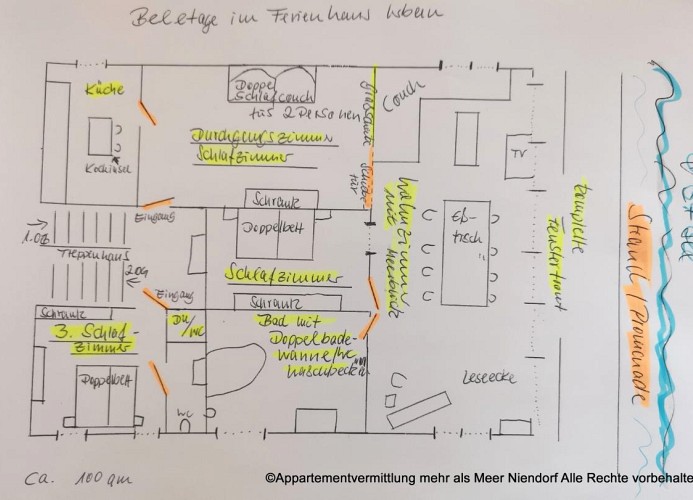 Beletage im Ferienhaus
Küche
Kochinsel
Doppel
Schlafcouch
für 2 Personen
Durchgangszimmer
Schlafzimmer
Schiebe
tür
Couch
TV
Eingang
Schrank
Doppelbett
Schlafzimmer
Schrank
1.OG
Treppenhaus
2.OG
Eingang
Schrank
3. Schlaf-
zimmer
Doppelbett
DU/
WC
WC
Bad mit
Doppelbade-
wanne/WC
Waschbecken
Wohnzimmer
mit Meerblick
Eß-
tisch
Leseecke
komplette
Fensterfront
Strand/Promenade
Ostsee
ca. 100 qm
©Appartementvermittlung mehr als Meer Niendorf Alle Rechte vorbehalte